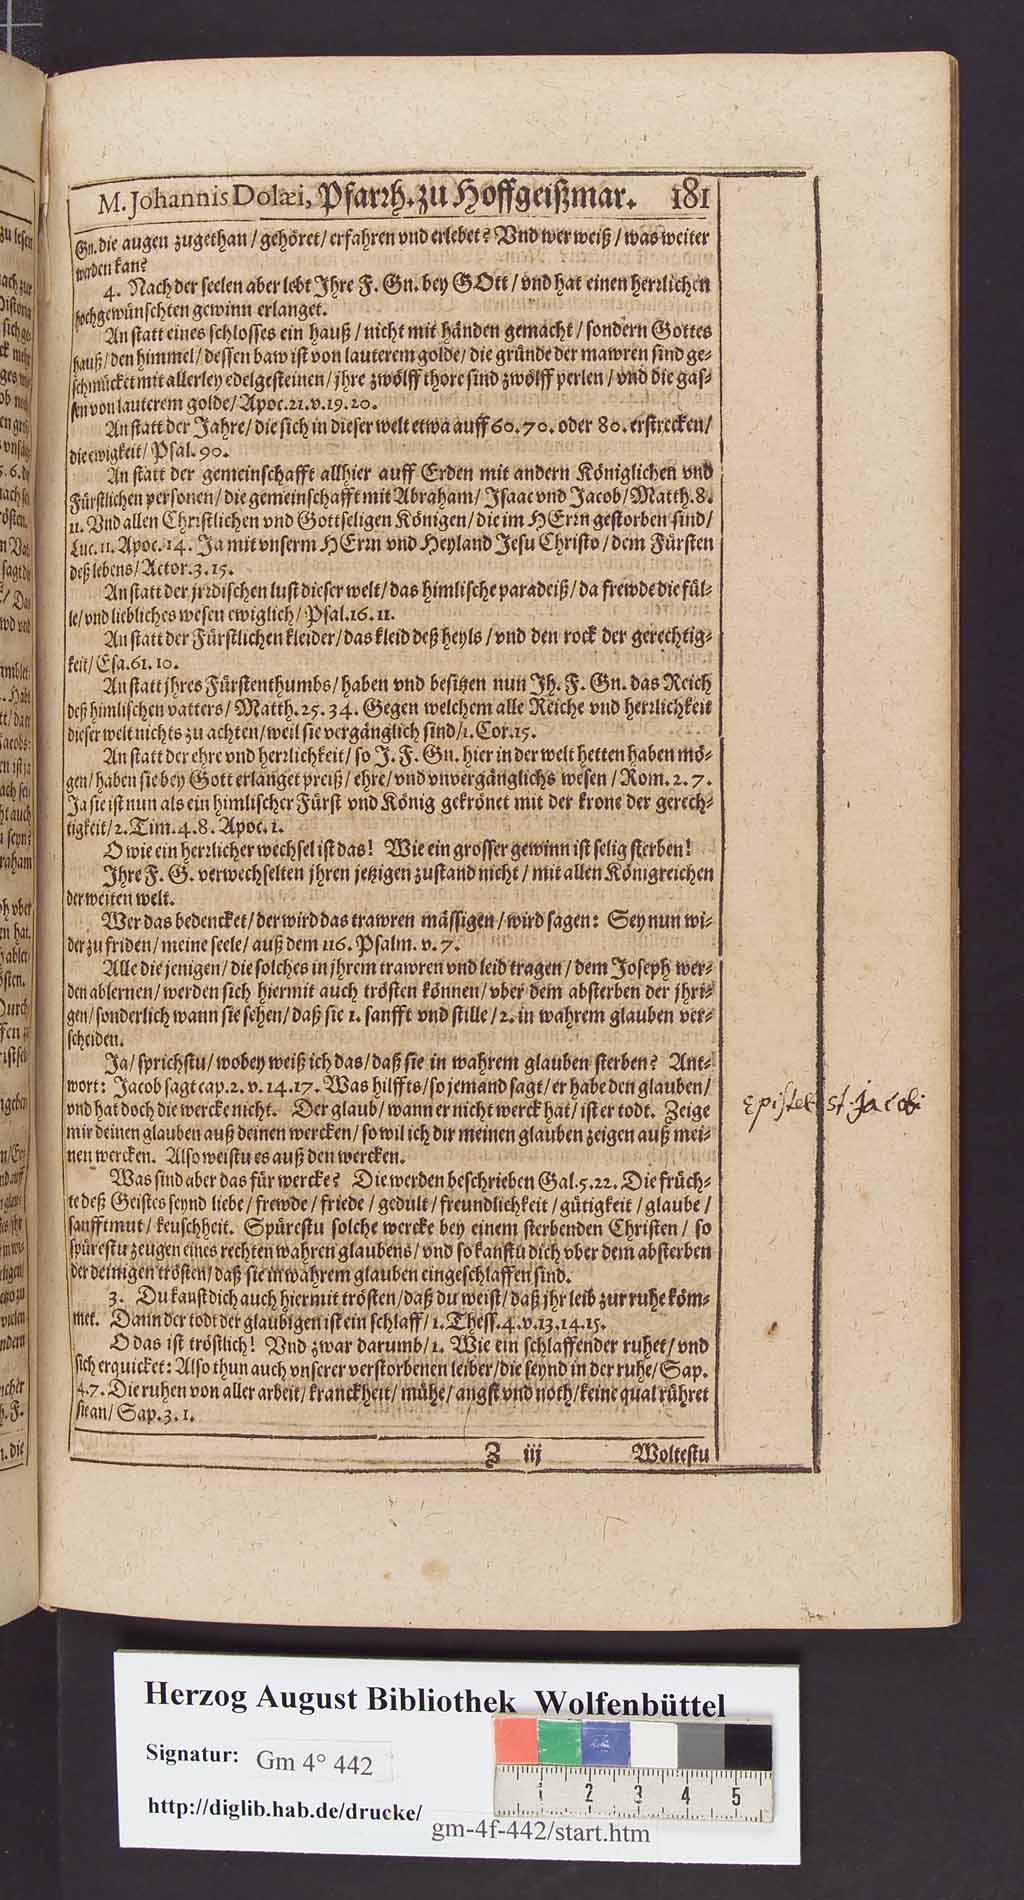 M. Johannis Dolæi, Pfarrh. zu Hoffgeißmar. 181
Gn. die augen zugethan / gehöret / erfahren vnd erlebet? Vnd wer weiß / was weiter
werden kan?
4. Nach der seelen aber lebt Ihre F. Gn. bey GOtt / vnd hat einen herrlichen
hochgewünschten gewinn erlanget.
An statt eines schlosses ein hauß / nicht mit händen gemacht / sondern Gottes
hauß / den himmel / dessen baw ist von lauterem golde / die gründe der mawren sind ge-
schmücket mit allerley edelgesteinen / jhre zwölff thore sind zwölff perlen / vnd die gas-
sen von lauterem golde / Apoc. 21. v. 19. 20.
An statt der Jahre / die sich in dieser welt etwa auff 60. 70. oder 80. erstrecken /
die ewigkeit / Psal. 90.
An statt der gemeinschafft allhier auff Erden mit andern Königlichen vnd
Fürstlichen personen / die gemeinschafft mit Abraham / Isaac vnd Jacob / Matth. 8.
11. Vnd allen Christlichen vnd Gottseligen Königen / die im HErrn gestorben sind /
Luc. 11. Apoc. 14. Ja mit vnserm HErrn vnd Heyland Jesu Christo / dem Fürsten
deß lebens / Actor. 3. 15.
An statt der jrrdischen lust dieser welt / das himlische paradeiß / da frewde die fül-
le / vnd liebliches wesen ewiglich / Psal. 16. 11.
An statt der Fürstlichen kleider / das kleid deß heyls / vnd den rock der gerechtig-
keit / Esa. 61. 10.
An statt jhres Fürstenthumbs / haben vnd besitzen nun Ih. F. Gn. das Reich
deß himlischen vatters / Matth. 25. 34. Gegen welchem alle Reiche vnd herrlichkeit
dieser welt nichts zu achten / weil sie vergänglich sind / 1. Cor. 15.
An statt der ehre vnd herrlichkeit / so J. F. Gn. hier in der welt hetten haben mö-
gen / haben sie bey Gott erlanget preiß / ehre / vnd vnvergänglichs wesen / Rom. 2. 7.
Ja sie ist nun als ein himlischer Fürst vnd König gekrönet mit der krone der gerech-
tigkeit / 2. Tim. 4. 8. Apoc. 1.
O wie ein herrlicher wechsel ist das! Wie ein grosser gewinn ist selig sterben!
Ihre F. G. verwechselten jhren jetzigen zustand nicht / mit allen Königreichen
der weiten welt.
Wer das bedencket / der wird das trawren mässigen / wird sagen: Sey nun wi-
der zu friden / meine seele / auß dem 116. Psalm. v. 7.
Alle die jenigen / die solches in jhrem trawren vnd leid tragen / dem Joseph wer-
den ablernen / werden sich hiermit auch trösten können / vber dem absterben der jhri-
gen / sonderlich wann sie sehen / daß sie 1. sanfft vnd stille / 2. in wahrem glauben ver-
scheiden.
Ja / sprichstu / wobey weiß ich das / daß sie in wahrem glauben sterben? Ant-
wort: Jacob sagt cap. 2. v. 14. 17. Was hilffts / so jemand sagt / er habe den glauben /
vnd hat doch die wercke nicht. Der glaub / wann er nicht werck hat / ist er todt. Zeige
mir deinen glauben auß deinen wercken / so wil ich dir meinen glauben zeigen auß mei-
nen wercken. Also weistu es auß den wercken.
Epistel st. Jacobi
Was sind aber das für wercke? Die werden beschrieben Gal. 5. 22. Die früch-
te deß Geistes seynd liebe / frewde / friede / gedult / freundlichkeit / gütigkeit / glaube /
saufftmut / keuschheit. Spürestu solche wercke bey einem sterbenden Christen / so
spürestu zeugen eines rechten wahren glaubens / vnd so kanstu dich vber dem absterben
der deinigen trösten / daß sie in wahrem glauben eingeschlaffen sind.
3. Du kanst dich auch hiermit trösten / daß du weist / daß jhr leib zur ruhe köm-
met. Dann der todt der glaubigen ist ein schlaff / 1. Thess. 4. v. 13. 14. 15.
O das ist tröstlich! Vnd zwar darumb / 1. Wie ein schlaffender ruhet / vnd
sich erquicket: Also thun auch vnserer verstorbenen leiber / die seynd in der ruhe / Sap.
4. 7. Die ruhen von aller arbeit / kranckheit / mühe / angst vnd noth / keine qual rühret
sie an / Sap. 3. 1.
Z iij Woltestu
Herzog August Bibliothek Wolfenbüttel
Signatur: Gm 4° 442
http://diglib.hab.de/drucke/
gm-4f-442/start.htm
1 2 3 4 5